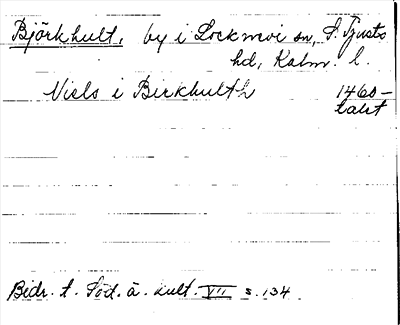 Björkhult, by i Locknevi sn, S. Tjusts
hd, Kalm. l.
Niels i Birkhulth 1460-
talet
Bidr. t. Söd. å. kult. VII s. 134